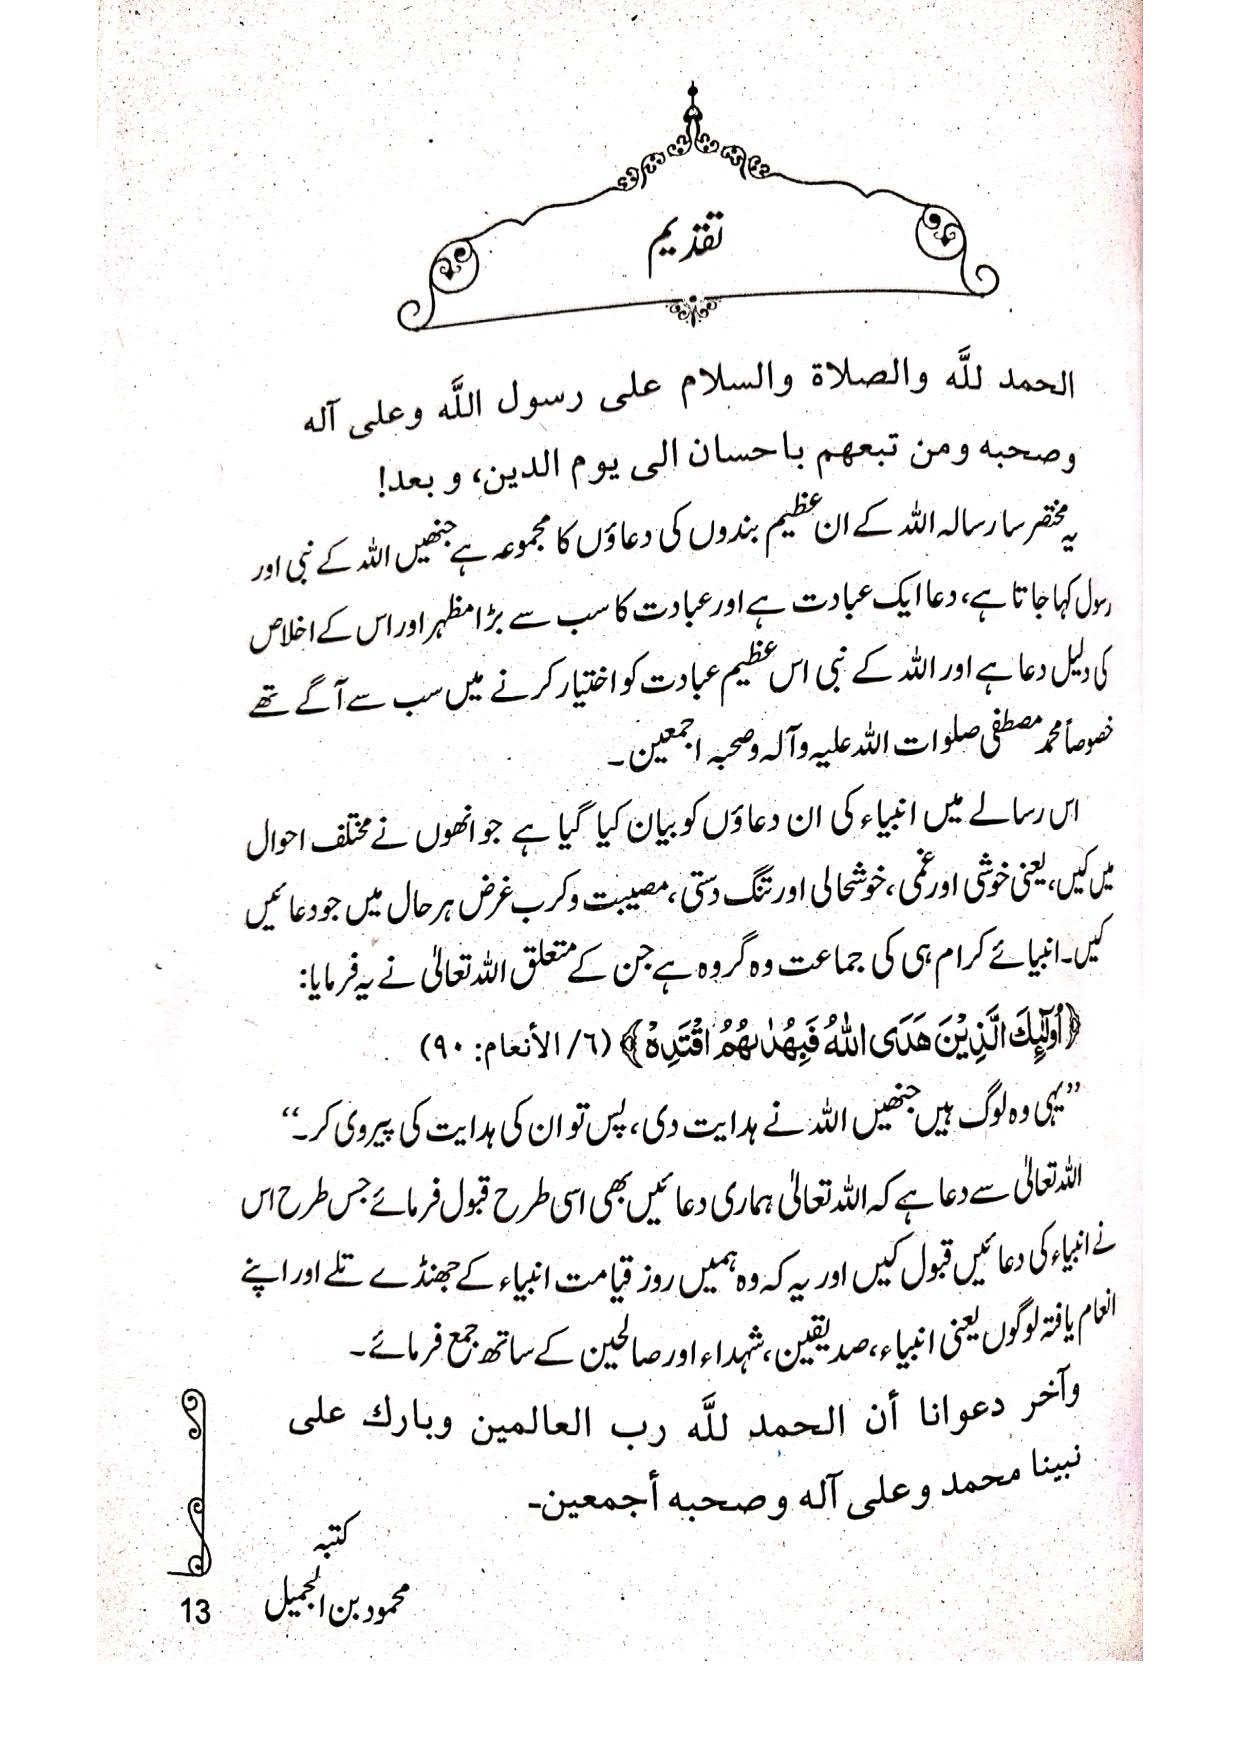 تقدیم
الحمد للَّه والصلاة والسلام على رسول اللَّه وعلى آله
وصحبه ومن تبعهم باحسان الى يوم الدين، و بعد!
یہ مختصر سا رسالہ اللہ کے ان عظیم بندوں کی دعاؤں کا مجموعہ ہے جنھیں اللہ کے نبی اور
رسول کہا جاتا ہے، دعا ایک عبادت ہے اور عبادت کا سب سے بڑا مظہر اور اس کے اخلاص
کی دلیل دعا ہے اور اللہ کے نبی اس عظیم عبادت کو اختیار کرنے میں سب سے آگے تھے
خصوصاً محمد مصطفی صلوات اللہ علیہ وآلہ وصحبہ اجمعین۔
اس رسالے میں انبیاء کی ان دعاؤں کو بیان کیا گیا ہے جو انھوں نے مختلف احوال
میں کیں، یعنی خوشی اور غمی، خوشحالی اور تنگ دستی، مصیبت و کرب غرض ہر حال میں جو دعائیں
کیں۔ انبیائے کرام ہی کی جماعت وہ گروہ ہے جن کے متعلق اللہ تعالیٰ نے یہ فرمایا:
﴿اُولٰٓئِكَ الَّذِيْنَ هَدَى اللّٰهُ فَبِهُدٰىهُمُ اقْتَدِهْ﴾ (٦/ الأنعام: ٩٠)
”یہی وہ لوگ ہیں جنھیں اللہ نے ہدایت دی، پس تو ان کی ہدایت کی پیروی کر۔“
اللہ تعالیٰ سے دعا ہے کہ اللہ تعالیٰ ہماری دعائیں بھی اسی طرح قبول فرمائے جس طرح اس
نے انبیاء کی دعائیں قبول کیں اور یہ کہ وہ ہمیں روز قیامت انبیاء کے جھنڈے تلے اور اپنے
انعام یافتہ لوگوں یعنی انبیاء، صدیقین، شہداء اور صالحین کے ساتھ جمع فرمائے۔
وآخر دعوانا أن الحمد للَّه رب العالمين وبارك على
نبينا محمد وعلى آله وصحبه أجمعين۔
کتبہ
محمود بن الجمیل
13